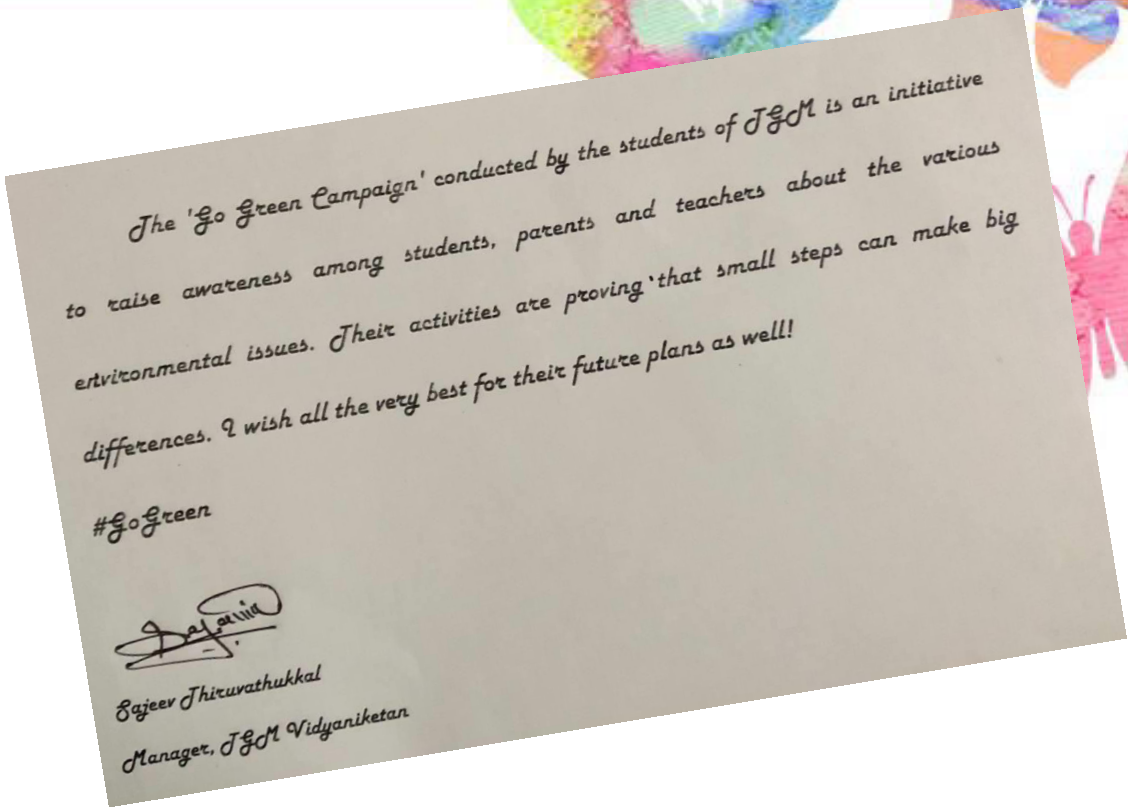 The 'Go Green Campaign' conducted by the students of TGM is an initiative
to raise awareness among students, parents and teachers about the various
environmental issues. Their activities are proving that small steps can make big
differences. I wish all the very best for their future plans as well!
#GoGreen
Sajeev Thiruvathukkal
Manager, TGM Vidyaniketan